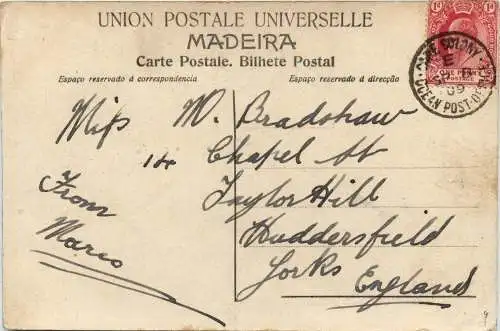 UNION POSTALE UNIVERSELLE
MADEIRA
Carte Postale. Bilhete Postal
Espaço reservado á correspondencia
Espaço reservado á direcção
1d
1d
ONE PENNY
POSTAGE
CAPE COLONY
E
09
OCEAN POST-OFFICE
Miss M. Bradshaw
14 Chapel St
Taylor Hill
Huddersfield
Yorks England
From